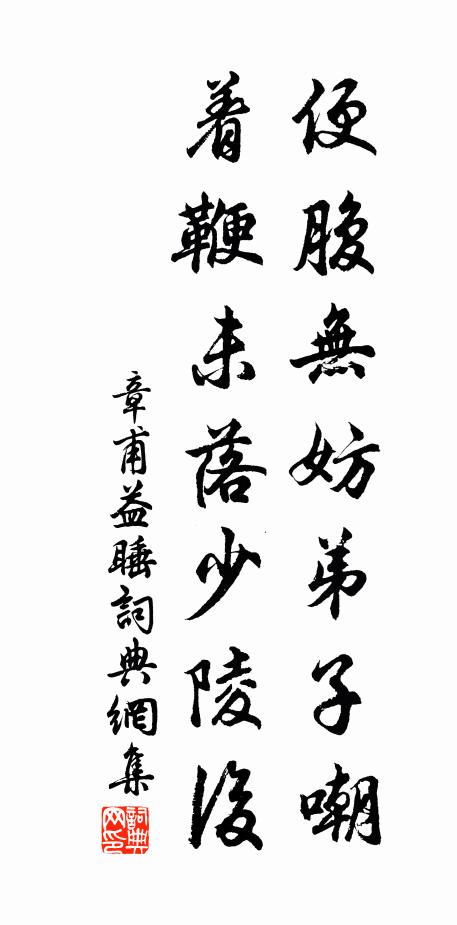 便腹無妨弟子嘲
着鞭未落少陵後
章甫益睡詞典網集
詞典
网印